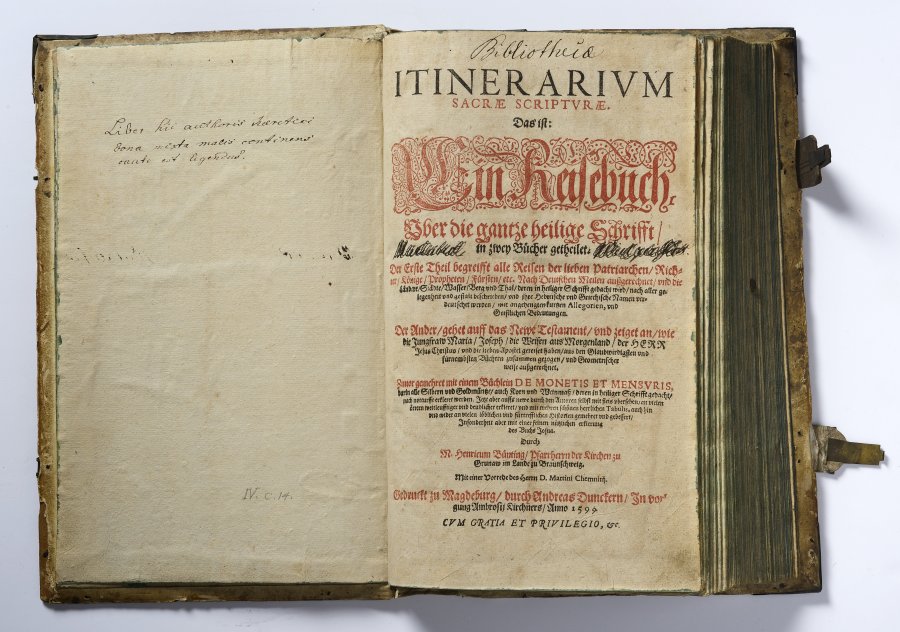 Liber hic authoris hæretici
bona mixta malis continens
caute est legendus.
IV. C. 14.
Bibliothecæ
ITINERARIVM
SACRÆ SCRIPTVRÆ.
Das ist:
Ein Reisebuch,
Vber die gantze heilige Schrifft/
in zwey Bücher getheilet.
Der Erste Theil begreifft alle Reisen der lieben Patriarchen/ Rich-
ter/ Könge/ Propheten/ Fürsten/ etc. Nach Deutschen Meilen außgerechnet/ vnd die
Länder/ Städte/ Wasser/ Berg vnd Thal/ deren in heiliger Schrifft gedacht wird/ nach aller ge-
legenheit vnd gestalt beschrieben/ vnd jhre Hebreische vnd Griechische Namen ver-
deutschet werden/ mit angehengten kurtzen Allegorien, vnd
Geistlichen Bedeutungen.
Der Ander/ gehet auff das Newe Testament/ vnd zeiget an/ wie
die Jungfraw Maria/ Joseph/ die Weisen aus Morgenland/ der HERR
Jesus Christus/ vnd die lieben Apostel gereiset haben/ aus den Glaubwirdigsten vnd
fürnembsten Büchern zusammen gezogen/ vnd Geometrischer
weise außgerechnet,
Zuuor gemehret mit einem Büchlein DE MONETIS ET MENSVRIS,
darin alle Silbern vnd Goldmüntz/ auch Korn vnd Weinmaß/ deren in heiliger Schrifft gedacht/
nach notturfft erkleret werden. Jetzt aber auffs newe durch den Autoren selbst mit fleis vbersehen/ an vielen
örtern weitleufftiger vnd deudlicher erkleret/ vnd mit mehren schönen herrlichen Tabulis, auch hin
vnd wider an vielen löblichen vnd fürtrefflichen Historien gemehret vnd gebessert/
Insonderheit aber mit einer feinen nützlichen erklerung
des Buchs Josua.
Durch
M. Henricum Bünting/ Pfarrherrn der Kirchen zu
Grunaw im Lande zu Braunschweig.
Mit einer Vorrede des Herrn D. Martini Chemnitz.
Gedruckt zu Magdeburg/ durch Andreas Dunckern/ In vor-
gung Ambrosij Kirchners/ Anno 1599
CVM GRATIA ET PRIVILEGIO, &c.